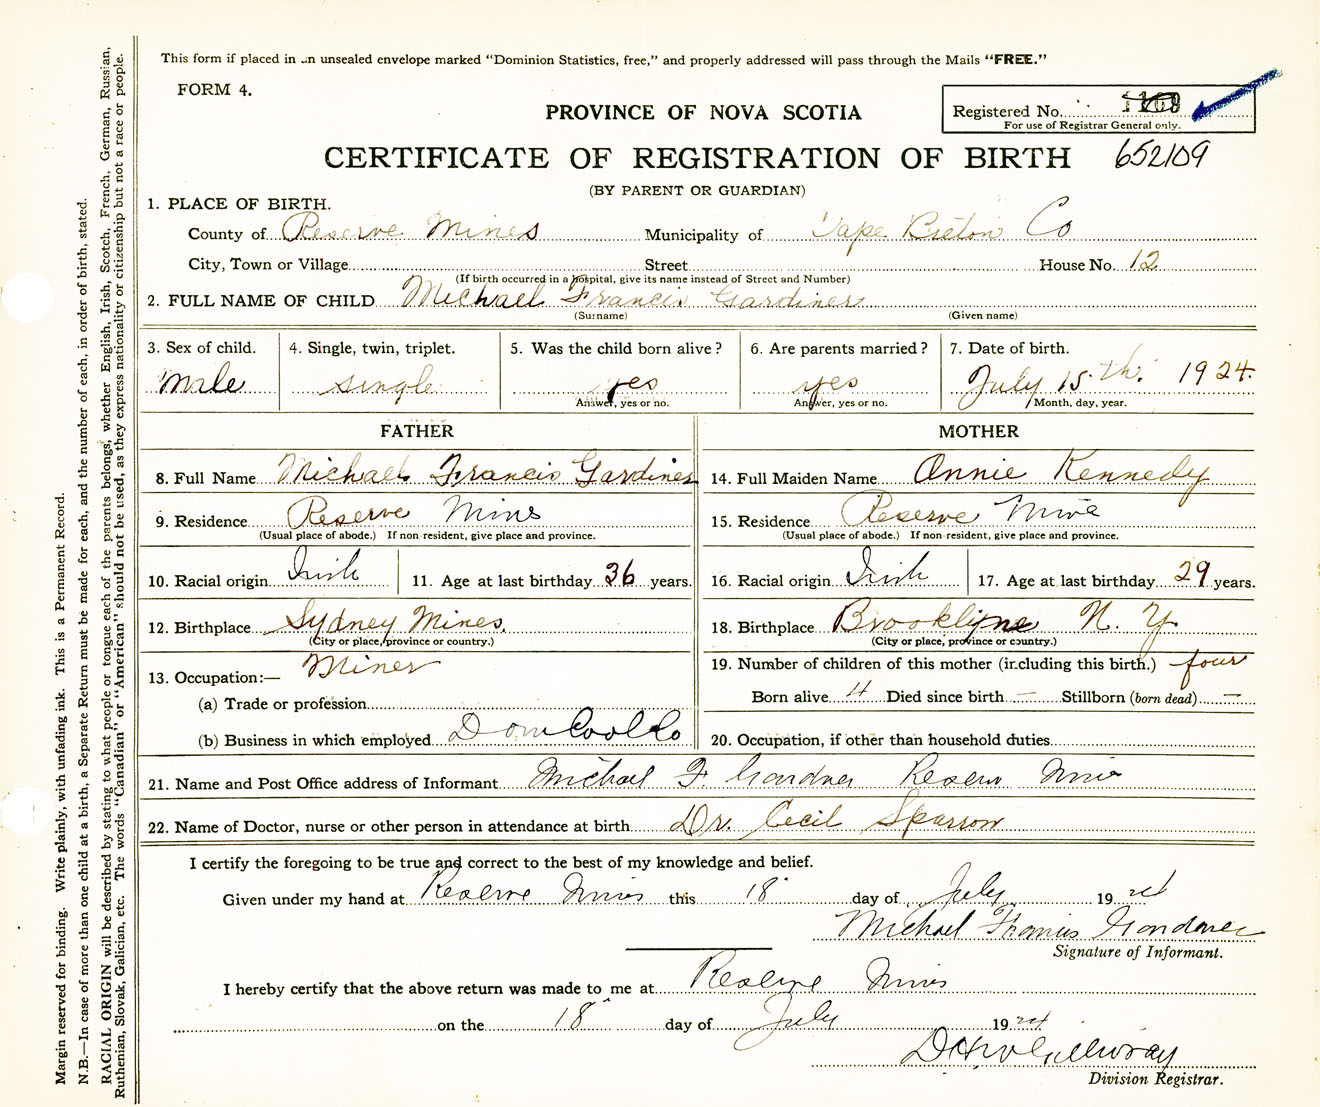 This form if placed in an unsealed envelope marked "Dominion Statistics, free," and properly addressed will pass through the Mails "FREE."
FORM 4.
PROVINCE OF NOVA SCOTIA
Registered No.
For use of Registrar General only.
CERTIFICATE OF REGISTRATION OF BIRTH 652109
(BY PARENT OR GUARDIAN)
1. PLACE OF BIRTH.
County of Reserve Mines Municipality of Cape Breton Co
City, Town or Village Street House No. 12
(If birth occurred in a hospital, give its name instead of Street and Number)
2. FULL NAME OF CHILD Michael Francis Gardiner
(Surname) (Given name)
3. Sex of child. 4. Single, twin, triplet. 5. Was the child born alive? 6. Are parents married? 7. Date of birth.
Male single yes yes July 15th. 1924.
Answer, yes or no. Answer, yes or no. Month, day, year.
FATHER MOTHER
8. Full Name Michael Francis Gardiner 14. Full Maiden Name Annie Kennedy
9. Residence Reserve Mines 15. Residence Reserve Mine
(Usual place of abode.) If non-resident, give place and province. (Usual place of abode.) If non-resident, give place and province.
10. Racial origin Irish 11. Age at last birthday 36 years. 16. Racial origin Irish 17. Age at last birthday 29 years.
12. Birthplace Sydney Mines. 18. Birthplace Brooklyne N. Y
(City or place, province or country.) (City or place, province or country.)
13. Occupation:— Miner 19. Number of children of this mother (including this birth.) four
(a) Trade or profession Born alive 4 Died since birth — Stillborn (born dead) —
(b) Business in which employed Dom Coal Co 20. Occupation, if other than household duties
21. Name and Post Office address of Informant Michael F. Gardner Reserve Mines
22. Name of Doctor, nurse or other person in attendance at birth Dr. Cecil Sparrow
I certify the foregoing to be true and correct to the best of my knowledge and belief.
Given under my hand at Reserve Mines this 18 day of July 1924
Michael Francis Gardiner
Signature of Informant.
I hereby certify that the above return was made to me at Reserve Mines
on the 18 day of July 1924
Division Registrar.
Margin reserved for binding. Write plainly, with unfading ink. This is a Permanent Record.
N.B.—In case of more than one child at a birth, a Separate Return must be made for each, and the number of each, in order of birth, stated.
RACIAL ORIGIN will be described by stating to what people or tongue each of the parents belongs, whether English, Irish, Scotch, French, German, Russian,
Ruthenian, Slovak, Galician, etc. The words "Canadian" or "American" should not be used, as they express nationality or citizenship but not a race or people.